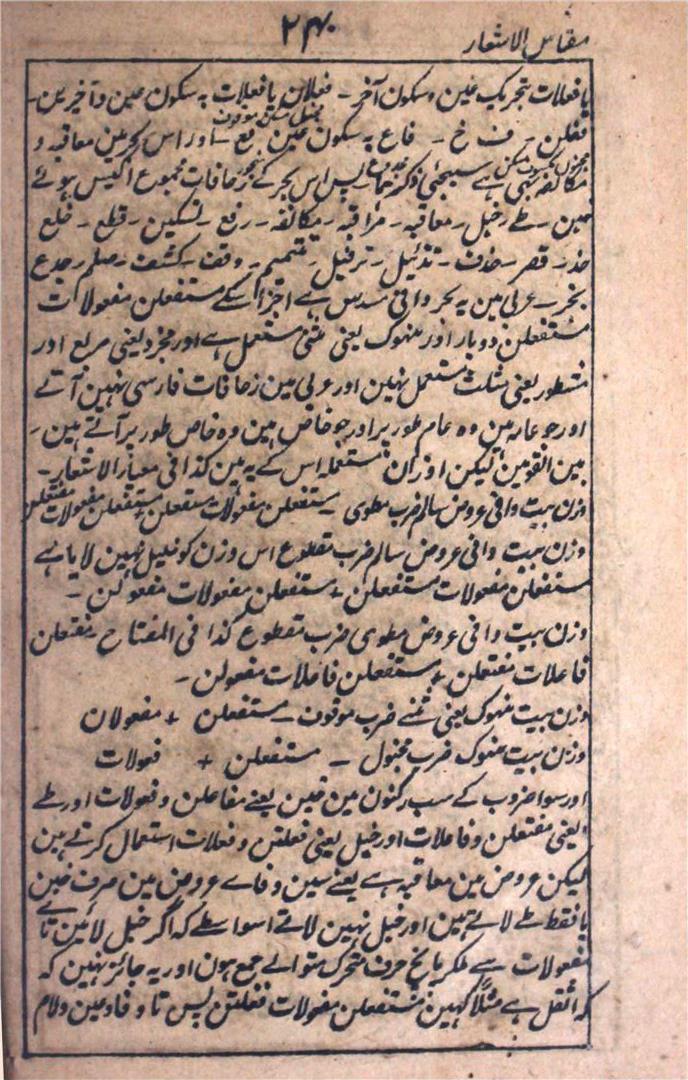 مقاس الاشعار
۲۴۰
یا فعلات بتحریک عین و سکون آخر ۔ فعلان یا فعلات بہ سکون عین و تاخیرین ۔
فعلن ۔ ف خ ۔ فاع بہ سکون عین فع ۔ اور اس بحر مین معاقبہ و
مکانفہ بھی ہے سیجئ ذکرہا ۔ پس اس بحر کے زحافات مجموع اکیس ہوئے
خبن ۔ طے ۔ خبل ۔ معاقبہ ۔ مراقبہ ۔ مکانفہ ۔ رفع ۔ تسکین ۔ قطع ۔ خلع
حذذ ۔ قصر ۔ حذف ۔ تذئیل ۔ ترفیل ۔ تتمیم ۔ وقف ۔ کشف ۔ صلم ۔ جدع
نحر ۔ عربی مین یہ بحر وافی مسدس ہے اجزا اسکے مستفعلن مفعولات
مستفعلن دو بار اور منہوک یعنی مثنی مستعمل ہے اور مجزو یعنی مربع اور
مشطور یعنی مثلث مستعمل نہین اور عربی مین زحافات فارسی نہین آتے
اور جو عام ہین وہ عام طور پر اور جو خاص ہین وہ خاص طور پر آتے ہین ۔
بین القومین لیکن اوزان مستعملہ اس کے یہ ہین کذا فی معیار الاشعار ۔
وزن بیت وافی عروض سالم ضرب مطوی ۔ مستفعلن مفعولات مستفعلن + مستفعلن مفعولات مفتعلن
وزن بیت وافی عروض سالم ضرب مقطوع اس وزن کو خلیل نہین لایا ہے
مستفعلن مفعولات مستفعلن + مستفعلن مفعولات مفعولن ۔
وزن بیت وافی عروض مطوی ضرب مقطوع کذا فی المفتاح ۔ مفتعلن
فاعلات مفتعلن + مستفعلن فاعلات مفعولن ۔
وزن بیت منہوک یعنی مثنے ضرب موقوف ۔ مستفعلن + مفعولان
وزن بیت منہوک ضرب مخبول ۔ مستفعلن + فعولات
اور سوا ضروب کے سب رکنون مین خبن یعنے مفاعلن و فعولات اور طے
یعنی مفتعلن و فاعلات اور خبل یعنی فعلتن و فعلات استعمال کرتے ہین
لیکن عروض مین معاقبہ ہے یعنے سین و فاے عروض مین صرف خبن
یا فقط طے لاتے ہین اور خبل نہین لاتے اسواسطے کہ اگر خبل لائین تاے
مفعولات سے ملکر پانچ حرف متحرک متوالے جمع ہون اور یہ جائز نہین کہ
کہ اثقل ہے مثلاً کہین مستفعلن مفعولات فعلتن پس تا و فا و عین و لام